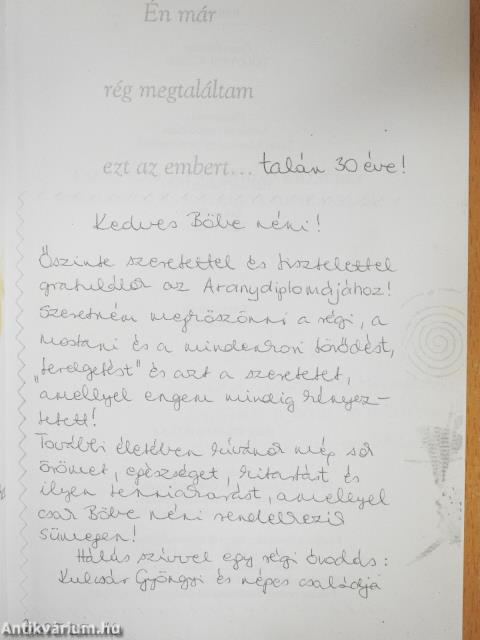 Én már
rég megtaláltam
ezt az embert... talán 30 éve!
Kedves Böbe néni!
Őszinte szeretettel és tisztelettel
gratulálok az Aranydiplomájához!
Szeretném megköszönni a régi, a
mostani és a mindenkori törődést,
"terelgetést" és azt a szeretetet,
amellyel engem mindig kényez-
tetett!
További életében kívánok még sok
örömet, egészséget, kitartást és
ilyen tenniakarást, amellyel
csak Böbe néni rendelkezik
Sümegen!
Hálás szívvel egy régi óvodás:
Kulcsár Gyöngyi és népes családja
Antikvárium.hu